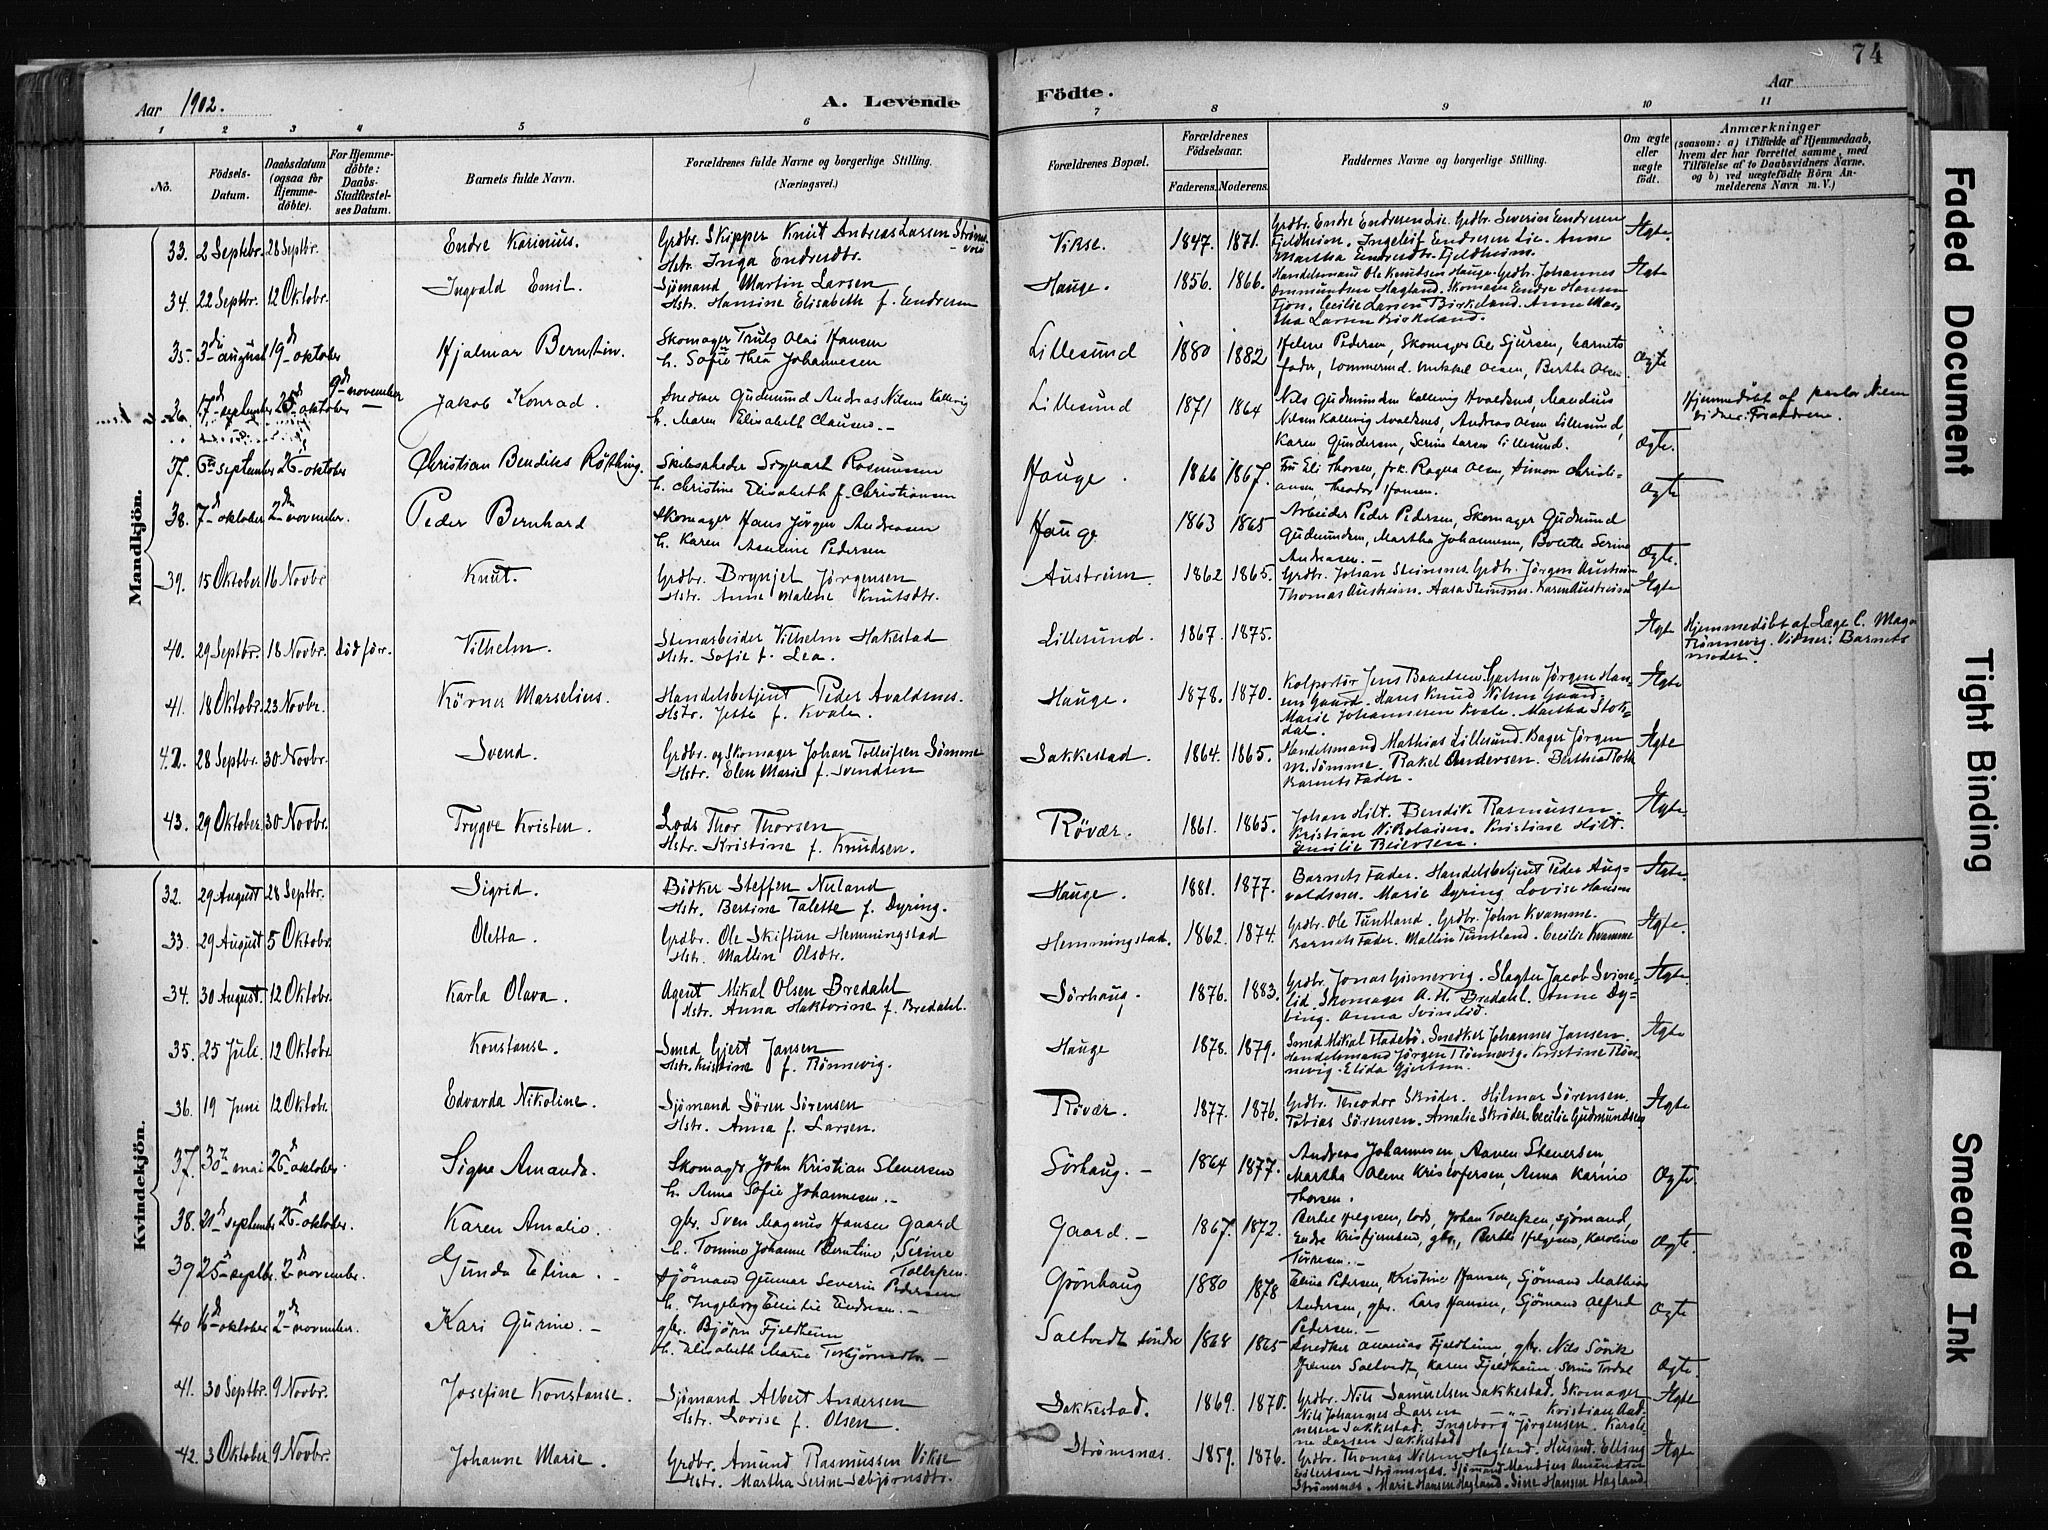 74
Aar 1902.
A. Levende
Födte.
Aar
1 2 3 4 5 6 7 8 9 10 11
No.
Födsels-Datum.
Daabsdatum (ogsaa for Hjemmedöbte).
For Hjemmedöbte: Daabs-Stadfæstelses Datum.
Barnets fulde Navn.
Forældrenes fulde Navne og borgerlige Stilling. (Næringsvei.)
Forældrenes Bopæl.
Forældrenes Födselsaar.
Faderens. Moderens.
Faddernes Navne og borgerlige Stilling.
Om ægte eller uægte födt.
Anmærkninger
(saasom: a) i Tilfælde af Hjemmedaab, hvem der har forrettet samme, med Tilföielse af to Daabsvidners Navne, og b) ved uægtefödte Börn Anmelderens Navn m. V.)
Mandkjön.
33. 2 Septebr. 28 Septbr. Endre Karinius. Grdbr. Skipper Knut Andreas Larsen
Hstr. Inga Endresdtr. Vikse. 1847. 1871. Grdbr. Endre Endresen Lie. Grdbr. Severin Endresen
Fjeldheim. Ingeleif Endresen Lie. Anne
Martha Endresdtr. Fjeldheim. Ægte
34. 22 Septbr. 12 Oktobr. Ingvald Emil. Sjömand Martin Larsen
Hstr. Hansine Elisabeth f. Endresen Hauge. 1856. 1866. Handelsmand Ole Knutsen Hauge. Grdbr. Johannes
Ommundsen Hagland. Skomager Endre Hansen
Cecilie Larsen Birkeland. Anne Mar-
tha Larsen Birkeland. Ægte
35. 3di august 19de oktober Hjalmar Bernstin. Skomager Truls Olai Hansen
h. Sofie Thea Johannesen Lillesund 1880 1882 Helene Pedersen, Skomager Ole Sjursen, barnets
fader, Olsen, Berthe Olsen. Ægte
36. 17de september 25de oktober 9de november Jakob Konrad. Snedker Gudmund Andreas Nilsen Kallevig
h. Maren Elisabeth Clausen. Lillesund 1871 1864 Nils Gudmundsen Kallevig Avaldsnes, Mandius
Nilsen Kallevig Avaldsnes, Andreas Olsen Lillesund,
Karen Gundersen, Serine Larsen Lillesund. Ægte. Hjemmedöbt af Nilsen
vidner: Forældrene.
37. 6te september 26 oktober Christian Bendiks Röthing. Sigvart Rasmussen
h. Christine Elisabeth f. Christiansen Hauge. 1866 1867. Fru Eli Thorsen, frk. Ragna Olsen, Simon Christi-
ansen, Theodor Hansen. Ægte
38. 7de oktober 2den november. Peder Bernhard Skomager Hans Jörgen Andreasen
h. Karen Pedersen Hauge 1863 1865 Arbeider Peder Pedersen, Skomager Gudmund
Gudmundsen, Martha Johannesen, Bolette Serine
Andreasen. Ægte.
39. 15 Oktober. 16 Novbr. Knut. Grdbr. Brynjel Jörgensen
Hstr. Anne Malene Knutsdtr. Austreim. 1862 1865. Grdbr. Johan Steinsnes. Grdbr. Jörgen Austreim
Thomas Austreim. Aasa Steinsnes. Karen Austreim Ægte
40. 29 Septbr. 18 Novbr. död för. Vilhelm. Stenarbeider Vilhelm Hakestad
Hstr. Sofie f. Lea. Lillesund. 1867. 1875. Ægte Hjemmedöbt af Læge C. Mage
Rönnevig. Vidner: Barnets
moder.
41. 18 Oktobr. 23 Novbr. Körner Marselius. Handelsbetjent Peder Avaldsnes.
Hstr. Jette f. Kvale. Hauge. 1878. 1870. Kolportör Jens Baardsen. Gartner Jörgen Han-
sen Gaard. Hans Knud Nilsen Gaard.
Marie Johannesen Kvale. Martha Stok-
dal. Ægte
42. 28 Septbr. 30 Novbr. Svend. Grdbr. og Skomager Johan Tolleifsen Sömme
Hstr. Elen Marie f. Svendsen Sakkestad. 1864. 1865. Handelsmand Mathias Lillesund. Bager Jörgen
M. Sömme. Rakel Andersen. Berthea Toth
Barnets Fader. Ægte
43. 29 Oktober. 30 Novbr. Trygve Kristen. Lods Thor Thorsen
Hstr. Kristine f. Knudsen. Rövær. 1861. 1865. Johan Hilt. Bendik Rasmussen.
Kristian Nikolaisen. Kristine Hilt.
Emilie Beiersen. Ægte
Kvindekjön.
32. 29 August 28 Septbr. Sigrid. Bödker Steffen Nuland
Hstr. Bertine Talette f. Dyring. Hauge. 1881. 1877. Barnets Fader. Handelsbetjent Peder Aug-
valdsnes. Marie Dyring. Lovise Hansen Ægte.
33. 29 August 5 Oktobr. Oletta. Grdbr. Ole Skiftun Hemmingstad
Hstr. Mallin Olsdtr. Hemmingstad. 1862. 1874. Grdbr. Ole Tuntland. Grdbr. John Kvamme.
Barnets Fader. Mallin Tuntland. Cecilie Kvamme Ægte.
34. 30 August. 12 Oktobr. Karla Olava. Agent Mikal Olsen Bredahl
Hstr. Anna Haktorine f. Bredahl. Sörhaug. 1876. 1883. Grdbr. Jonas Gismervig. Slagter Jacob Svine-
lid. Skomager A. H. Bredahl. Anne Dy-
bing. Anna Svinlid. Ægte
35. 25 Juli. 12 Oktobr. Konstanse. Smed Gjert Jansen
Hstr. Kristine f. Rönnevig. Hauge 1878. 1879. Smed Mikal Fladebö. Snedker Johannes Jansen.
Handelsmand Jörgen Rönnevig. Kristine Rön-
nevig. Elida Gjertsen. Ægte
36. 19 Juni 12 Oktobr. Edvarda Nikoline. Sjömand Sören Sörensen
Hstr. Anna f. Larsen. Rövær. 1877. 1876. Grdbr. Theodor Skröder. Hilmar Sörensen.
Tobias Sörensen. Amalie Skröder. Cecilie Gudmundsen Ægte
37. 30te mai 26de oktober. Signe Amanda. Skomagr John Kristian Stenersen
h. Anna Sofie Johannesen. Sörhaug. 1864 1877. Andreas Johannesen, Aanen Stenersen,
Martha Olene Kristofersen, Anna Karine
Thorsen. Ægte.
38. 21de september 26de oktober. Karen Amalie. gbr. Sven Magnus Hansen Gaard
h. Tomine Johanne Berntine, Serine
Tollefsen. Gaard. 1867. 1872. Bertel Helgesen, lods, Johan Tollefsen, sjömand,
Endre Kristjensen, gbr., Berthe Helgesen, Karoline
Törresen. Ægte.
39 25de septbr. 2den november. Gunda Elina. Sjömand Gunnar Severin Pedersen
h. Ingeborg Emilie Andersen. Grönhaug 1880 1878 Elina Pedersen, Kristine Hansen, Sjömand Mathias
Andersen, gbr. Lars Hansen, Sjömand Alfred
Pedersen. Ægte
40 6de oktober 2den november. Kari Gurine. gbr. Björn Fjeldheim
h. Elisabeth Marie Torbjörnsdtr. Saltvedt söndre 1868 1865 Snedker Ananias Fjeldheim, gbr. Nils Sörvik
Saltvedt, Karen Fjeldheim. Ægte.
41. 30 Septbr. 9 Novbr. Josefine Konstanse. Sjömand Albert Andersen
Hstr. Lovise f. Olsen. Sakkestad. 1869. 1870. Grdbr. Nils Samuelsen Sakkestad. Skomager
Nils Johannes Larsen Kristian Aad-
nesen Sakkestad. Ingeborg Jörgensen. Karoli-
ne Larsen Sakkestad Ægte
42. 3 Oktober 9 Novbr. Johanne Marie. Grdbr. Amund Rasmussen Vikse
Hstr. Martha Serine Sæbjörnsdtr. Strömsnæs. 1859. 1876. Grdbr. Thomas Nilsen Hagland. Husmd. Elling
Eilertsen Strömsnæs. Sjömand Mandius Amundsen
Strömsnæs. Marie Hansen Hagland. Sine Hansen Hagland Ægte
Faded Document
Tight Binding
Smeared Ink